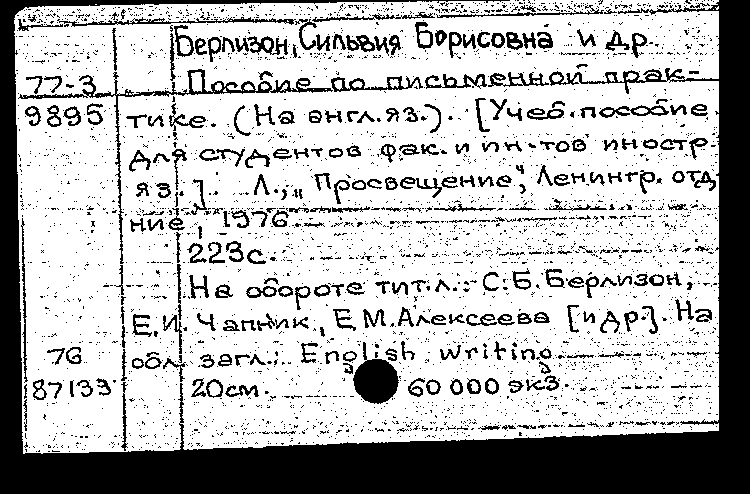 Берлизон, Сильвия Борисовна и др.
77-3 Пособие по письменной прак-
9895 тике. (На англ. яз.). [Учеб. пособие
для студентов фак. и ин-тов иностр.
яз.]. Л., "Просвещение", Ленингр. отд-
ние, 1976
223с.
На обороте тит.л.: С.Б.Берлизон,
Е.И. Чапник, Е.М.Алексеева [и др.]. На
76 обл. загл.: English writing
87133 20см. 60 000 экз.